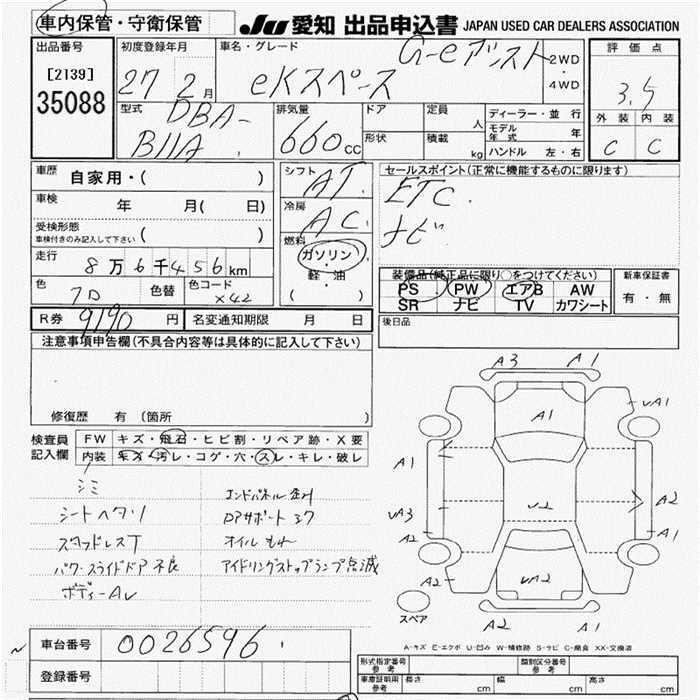 車内保管・守衛保管
JU 愛知 出品申込書 JAPAN USED CAR DEALERS ASSOCIATION
出品番号
[2139]
35088
初度登録年月
27 2月
車名・グレード
G-eアシスト
eKスペース
2WD
・
4WD
評価点
3.5
外装 内装
C C
型式
DBA-
B11A
排気量
660cc
ドア
形状
定員 人
積載 kg
ディーラー・並行
モデル年式 年
ハンドル 左・右
車歴 自家用・( )
車検 年 月( 日)
受検形態
車検付きのみ記入して下さい ( )
走行 8万6千456km
色 色替 色コード
X42
シフト
AT
冷房
AC
燃料
ガソリン
・
軽・油
( )
セールスポイント(正常に機能するものに限ります)
ETC
ナビ
装備品(純正品に限り○をつけてください)
PS PW エアB AW
SR ナビ TV カワシート
新車保証書
有・無
R券 9190円 名変通知期限 月 日
後日品
注意事項申告欄(不具合内容等は具体的に記入して下さい)
修復歴 有 (箇所 )
検査員
記入欄
FW キズ・飛石・ヒビ割・リペア跡・X要
内装 キズ・汚レ・コゲ・穴・スレ・キレ・破レ
シミ
シートヘタリ
スタッドレスT
パワースライドドア不良
ボディーAU
エンドパネル
DPサポート
オイルもれ
アイドリングストップランプ点滅
A3 A1
A1
UA1
A1
U2
UA3
A2
A2
A1
A2
UA2
A2
A2 A1
スペア
A-キズ E-エクボ U-凹み W-補修跡 S-サビ C-腐食 XX-交換済
車台番号 0026596
登録番号
形式指定番号
参考
類別区分番号
参考
車庫証明用
参考
長さ cm 幅 cm 高さ cm